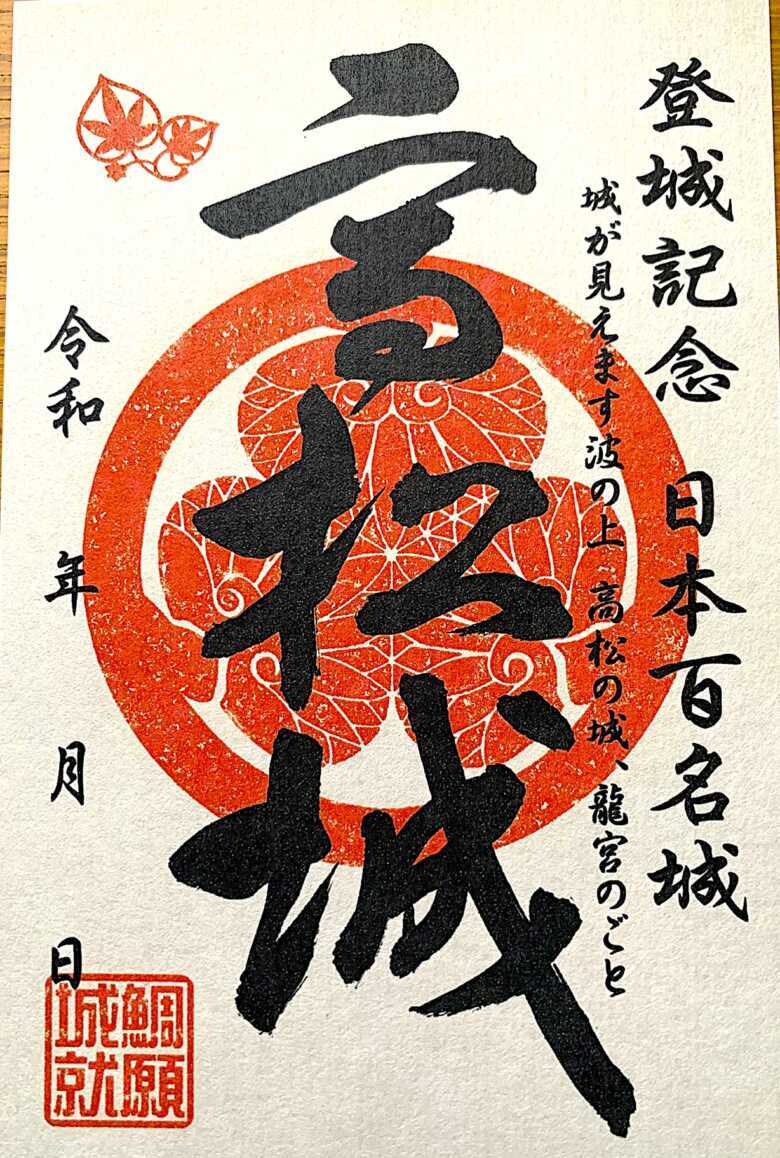 登城記念　日本百名城
城が見えます波の上　高松の城、龍宮のごと
高松城
令和　年　月　日
鯛願
城就